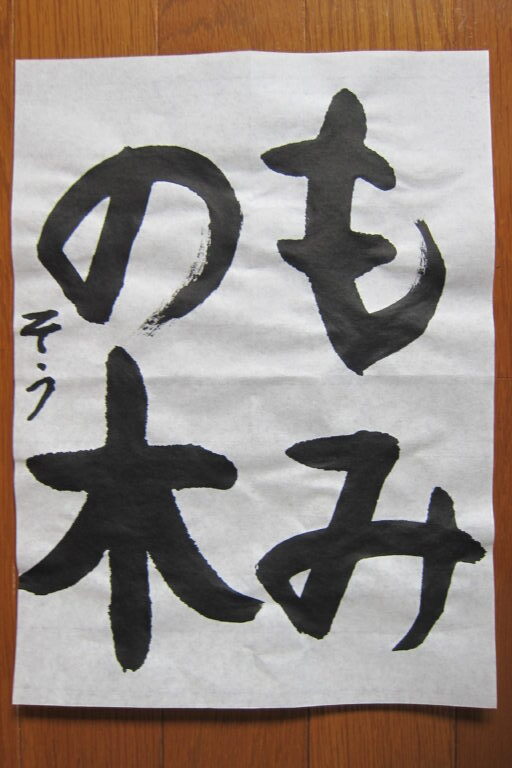 もみ
の木
そう